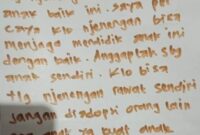 anak baik ini. saya per
caya klo njenengan bisa
menjaga mendidik anak ini
dengan baik. Anggaplah sbg
anak sendiri. Klo bisa
tlg njenengan rawat sendiri
jangan diadopti orang lain
anak